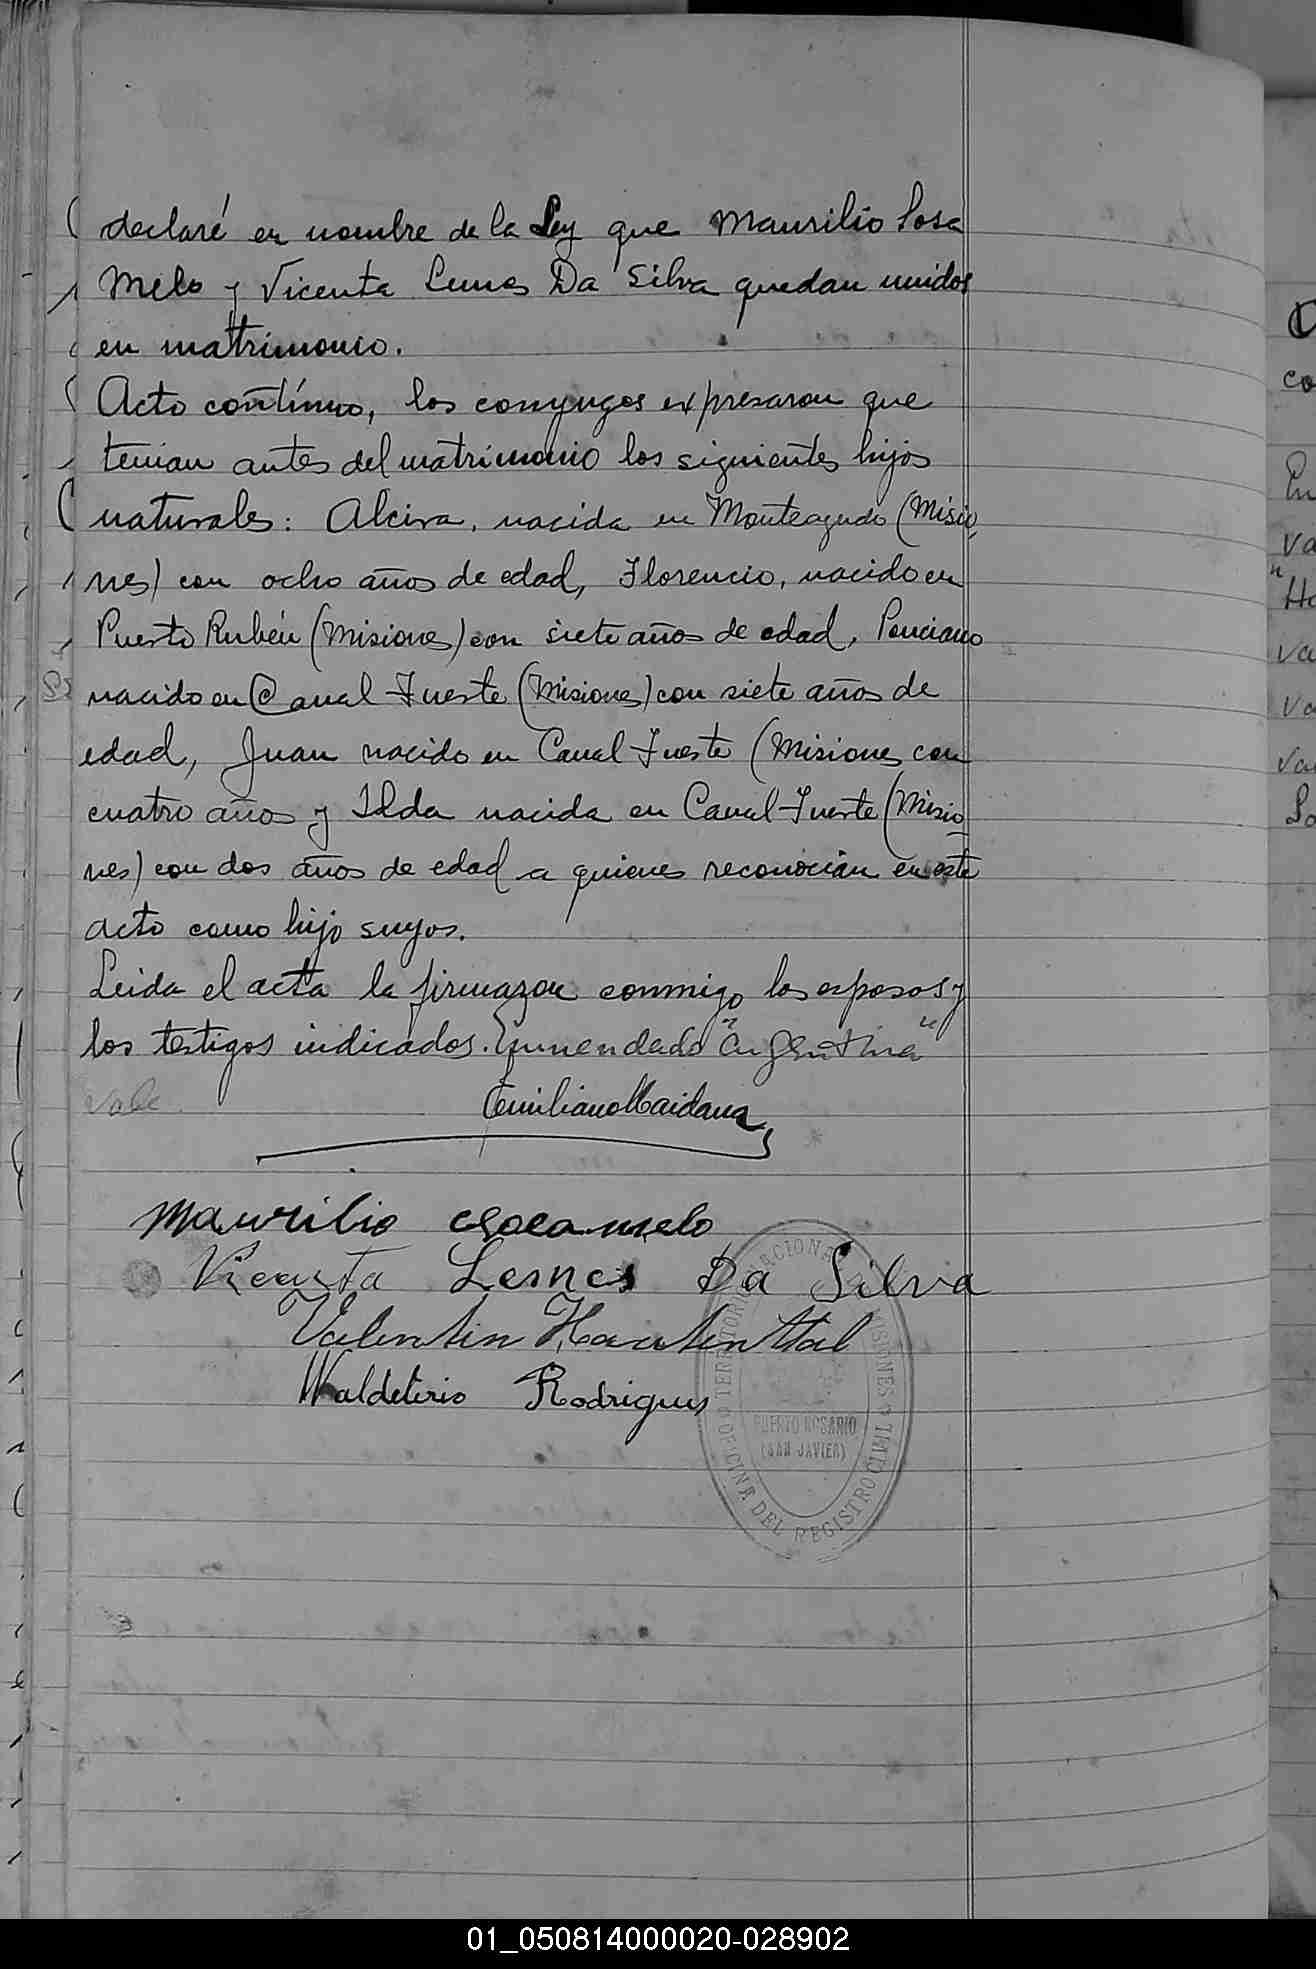 declaré en nombre de la Ley que Maurilio Sosa
Melo y Vicenta Lemes Da Silva quedan unidos
en matrimonio.
Acto contínuo, los conyuges expresaron que
tenian antes del matrimonio los siguientes hijos
naturales: Alcira, nacida en Monteagudo (Misio
nes) con ocho años de edad, Florencio, nacido en
Puerto Rubén (Misiones) con siete años de edad, Ponciano
nacido en Canal Fuerte (Misiones) con siete años de
edad, Juan nacido en Canal Fuerte (Misiones con
cuatro años y Ilda nacida en Canal-Fuerte (Misio
nes) con dos años de edad a quienes reconocian en este
acto como hijo suyos.
Leida el acta la firmazon conmigo los esposos y
los testigos indicados. Enmendado "argentina"
vale.
Emiliano Maidana
Maurilio Sosa melo
Vicenta Lemes Da Silva
Valentin
Waldeterio Rodrigues
OFICINA DEL REGISTRO CIVIL TERRITORIO NACIONAL MISIONES
PUERTO ROSARIO
(SAN JAVIER)
01_050814000020-028902